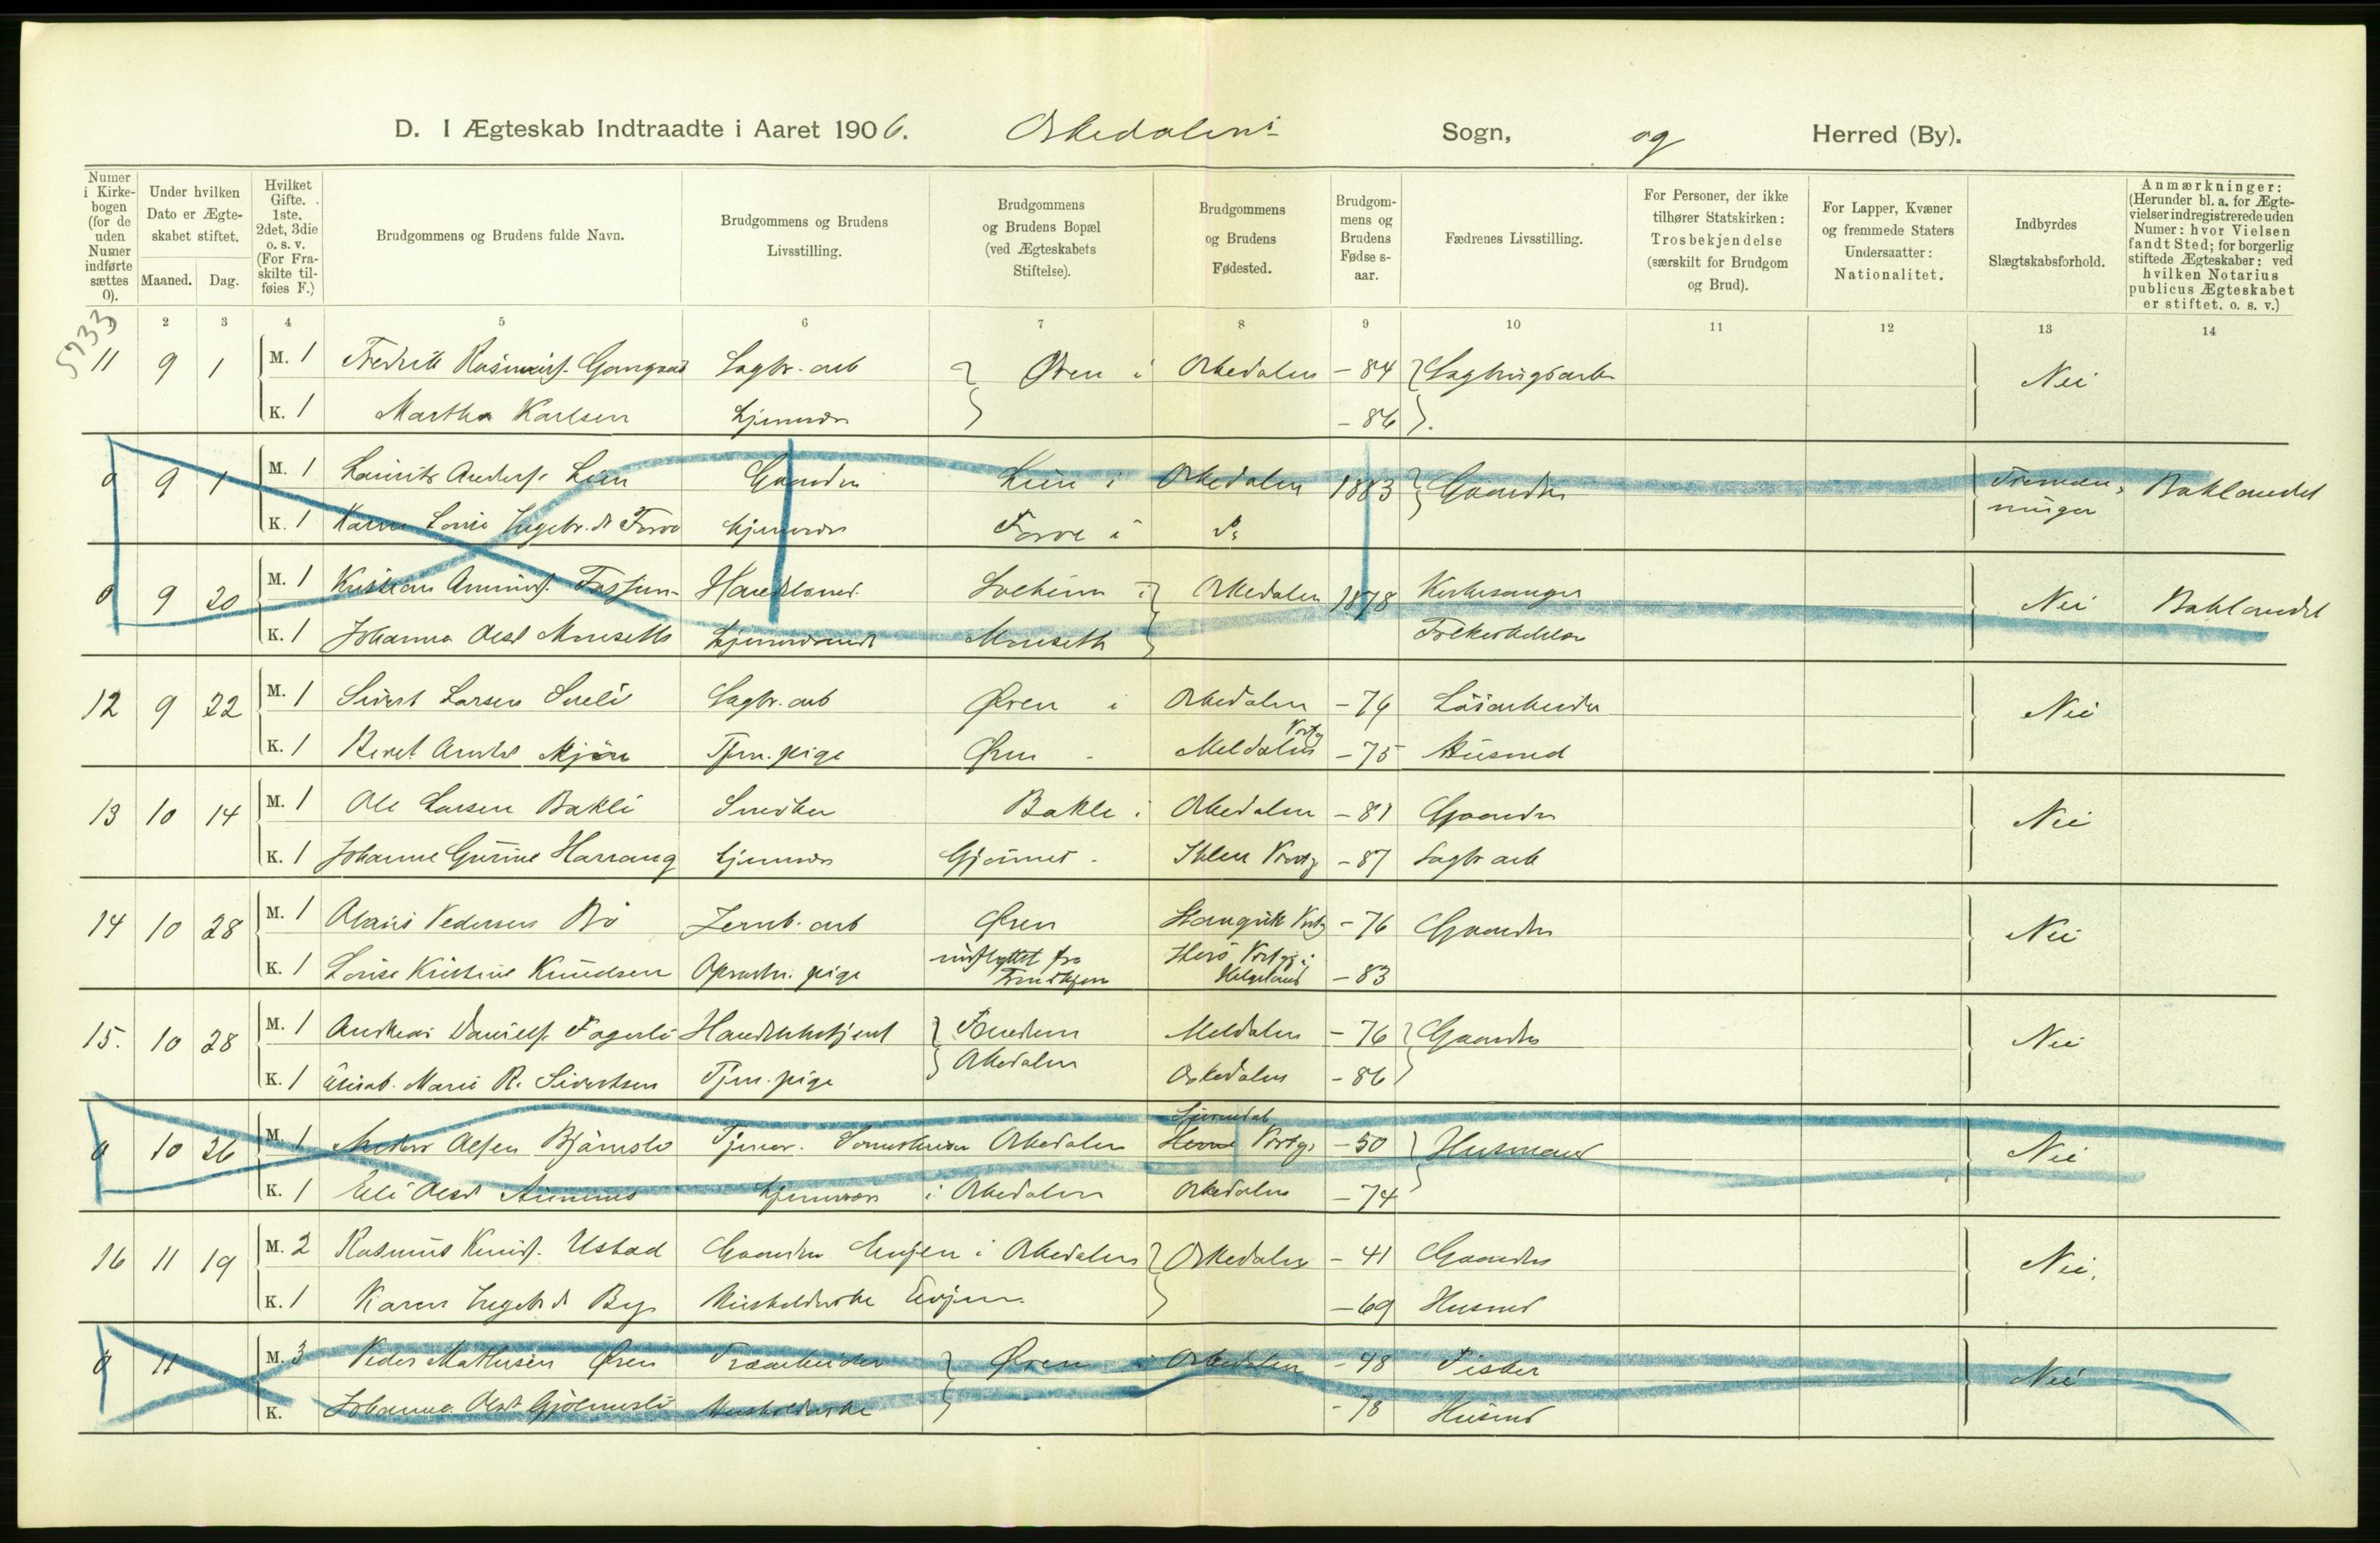 D. I Ægteskab Indtraadte i Aaret 1906. Orkedalens Sogn, og Herred (By).
Numer i Kirkebogen (for de uden Numer indførte sættes 0).
Under hvilken Dato er Ægteskabet stiftet.
Maaned. Dag.
Hvilket Gifte. 1ste, 2det, 3die o. s. v. (For Fraskilte tilføies F.)
Brudgommens og Brudens fulde Navn.
Brudgommens og Brudens Livsstilling.
Brudgommens og Brudens Bopæl (ved Ægteskabets Stiftelse).
Brudgommens og Brudens Fødested.
Brudgommens og Brudens Fødselsaar.
Fædrenes Livsstilling.
For Personer, der ikke tilhører Statskirken: Trosbekjendelse (særskilt for Brudgom og Brud).
For Lapper, Kvæner og fremmede Staters Undersaatter: Nationalitet.
Indbyrdes Slægtskabsforhold.
Anmærkninger: (Herunder bl. a. for Ægtevielser indregistrerede uden Numer: hvor Vielsen fandt Sted; for borgerlig stiftede Ægteskaber: ved hvilken Notarius publicus Ægteskabet er stiftet. o. s. v.)
2 3 4 5 6 7 8 9 10 11 12 13 14
5733
11 9 1 M. 1 Fredrik Sagbr. arb Øren i Orkedalen - 84 Sagbrugsarb Nei
K. 1 Martha Karlsen hjemmev - 86
0 9 1 M. 1 Laurits Anders. Lien Gaardbr Lien i Orkedalen 1883 Gaardbr Baklandet
K. 1 Karen hjemmev Forve i Do
0 9 20 M. 1 Kristian Orkedalen 1878 Kirkesanger Nei Baklandet
K. 1 Johanna Olsd Monseth hjemmev Monseth
12 9 22 M. 1 Sivert Larsen Sagbr. arb Øren i Orkedalen - 76 Løsarbeider Nei
K. 1 Beret Tjen. pige Øren - Meldalen - 75 Husmd
13 10 14 M. 1 Ole Larsen Bakli Snedker Bakli i Orkedalen - 81 Gaardbr Nei
K. 1 Johanne Gurine Harrang hjemmev - Ihlen - 87 Sagbr arb
14 10 28 M. 1 Pedersen Bø Jernb. arb Øren - 76 Gaardbr Nei
K. 1 Lovise Kristine Knudsen pige indflyttet fra Trondhjem Herø Helgeland - 83
15. 10 28 M. 1 Andreas Daniels. Fagerli Handelsbetjent Meldalen - 76 Gaardbr Nei
K. 1 Marie R. Sivertsen Tjen. pige Orkedalen Orkedalen - 86
0 10 26 M. 1 Anders Olsen Orkedalen Surendal - 50 Husmand Nei
K. 1 Eli Olsd hjemmev i Orkedalen Orkedalen - 74
16 11 19 M. 2 Rasmus Ustad Gaardbr Evjen i Orkedalen Orkedalen - 41 Gaardbr Nei.
K. 1 Karen By Husholderske Evjen - 69 Husmd
0 11 M. 3 Peder Mathisen Øren Træarbeider Øren i Orkedalen - 48 Fisker Nei
K. Johanna Olsd Gjølmesli Husholderske - 78 Husmd